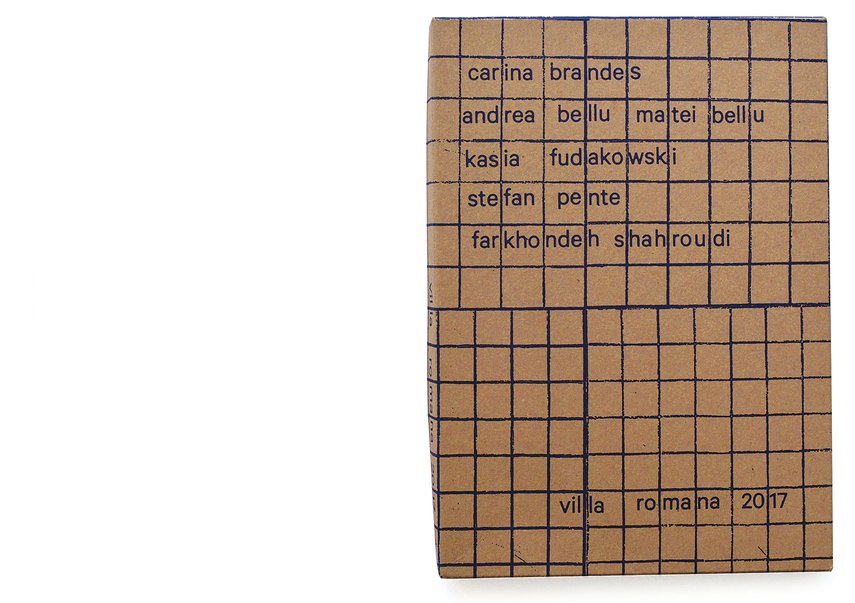 carina brandes
andrea bellu matei bellu
kasia fudakowski
stefan pente
farkhondeh shahroudi
villa romana 2017
villa romana